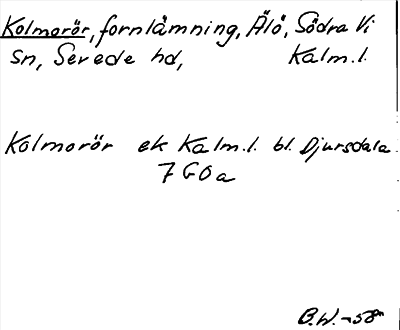 Kolmorör, fornlämning, Älö, Södra Vi
sn, Sevede hd, Kalm.l.
Kolmorör ek Kalm.l. bl. Djursdala
7 G0a
B.W. -58